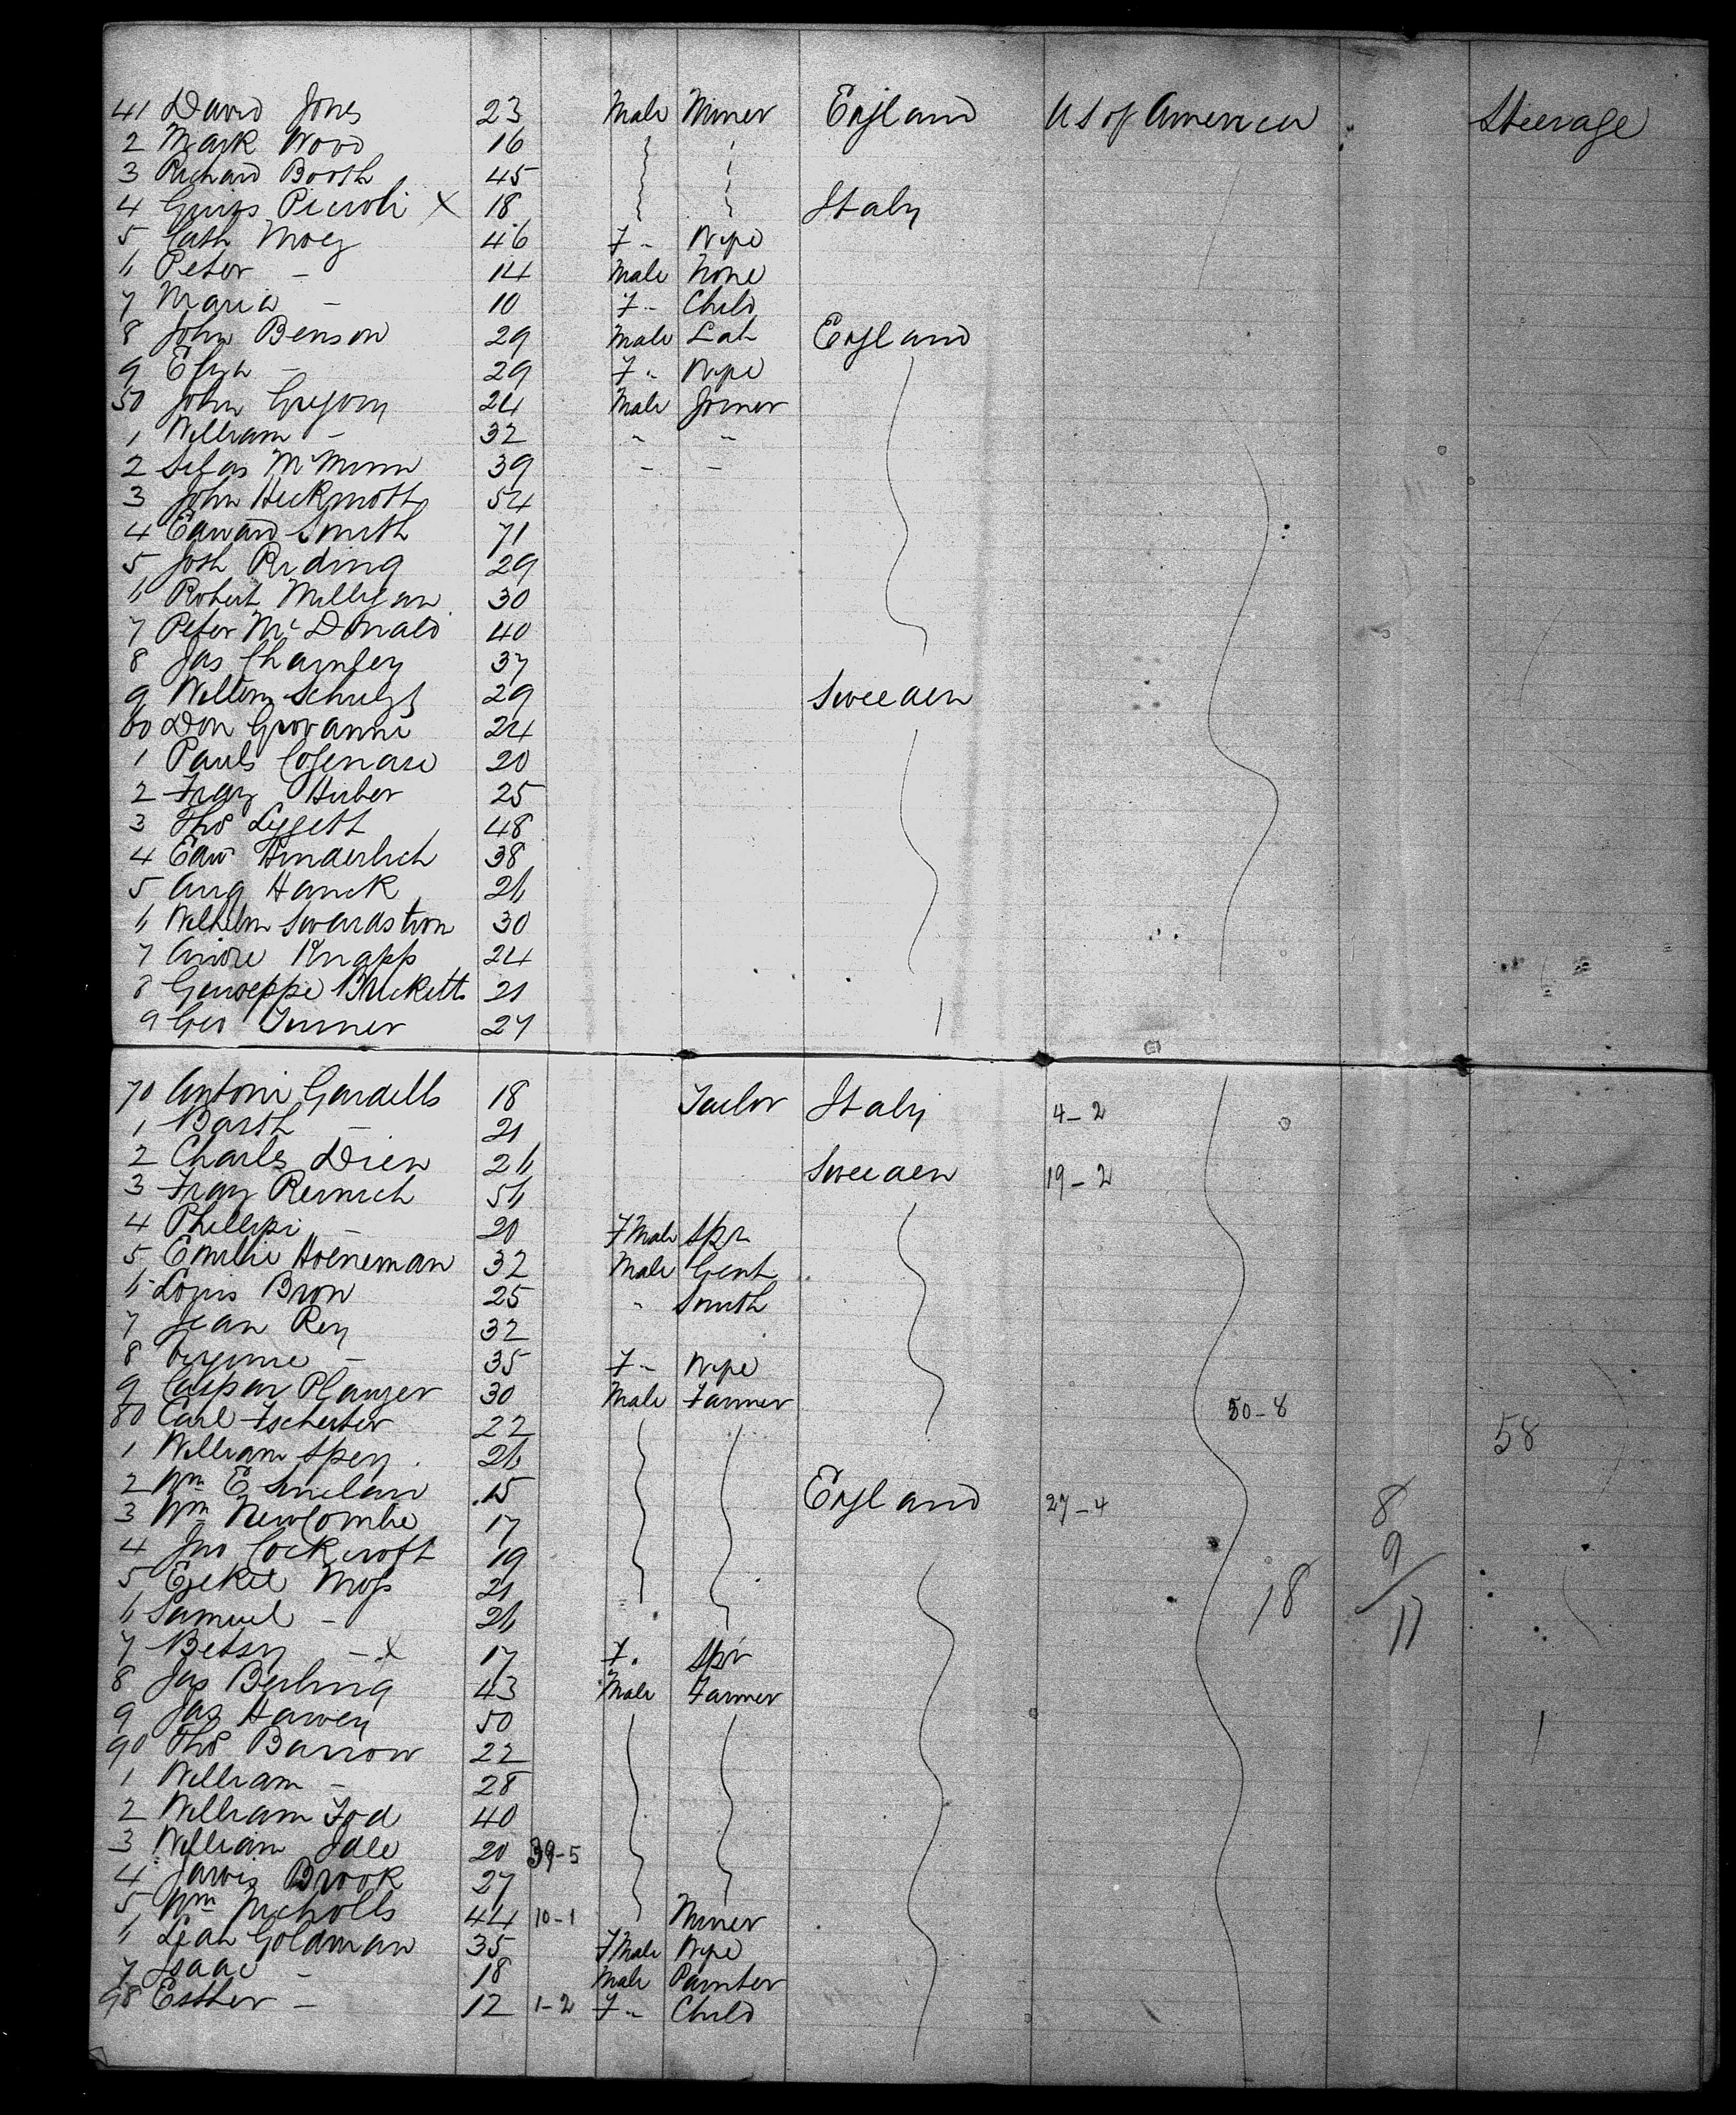 41 David Jones 23 Male Miner England U S of America Steerage
2 Mark Wood 16
3 Richard Booth 45
4 Piccoli X 18 Italy
5 Cath Moey 46 F " Wife
6 Peter - 14 Male None
7 Maria - 10 F " Child
8 John Benson 29 Male Lab England
9 Eliza - 29 F " Wife
50 John Gregory 24 Male Joiner
1 William - 32 " "
2 Silas McMinn 39 " "
3 John Heckmott 54
4 Edward Smith 71
5 Josh Riding 29
6 Robert Milligan 30
7 Peter McDonald 40
8 Jas Charnley 37
9 Schulz 29 Sweeden
60 Don Giovanni 24
1 Pauls 20
2 Franz Huber 25
3 Thos Liggett 48
4 Edw Hinderlich 38
5 Aug Hanck 26
6 Wilhelm Swardstrom 30
7 Knapp 24
8 Genseppe 21
9 Geo Turner 27
70 Antoni Gardells 18 Tailor Italy 4-2
1 Barth - 21
2 Charles Drew 26 Sweeden 19-2
3 Franz Reinich 56
4 Phillipi - 20 FMale Spr
5 Emilie Hoeneman 32 Male Gent
6 Louis Bron 25 " Smith
7 Jean Rey 32
8 Virginie - 35 F " Wife
9 Caspar Planzer 30 Male Farmer 50-8
80 Carl Fscherter 22 58
1 William Spey 26
2 Wm E Sinclair 15 England 27-4
3 Wm Newcombe 17 8
4 Jno Cockcroft 19 9
5 Ezekiel Moss 21 18 17
6 Samuel - 26
7 Betsy - X 17 F " Spr
8 Jas Berling 43 Male Farmer
9 Jas Harvey 50
90 Thos Barrow 22
1 William - 28
2 William Tod 40
3 William Idle 20 39-5
4 Jarvis Brook 27
5 Wm Nicholls 44 10-1 Miner
6 Leah Goldman 35 FMale Wife
7 Isaac - 18 Male Painter
98 Esther - 12 1-2 F " Child